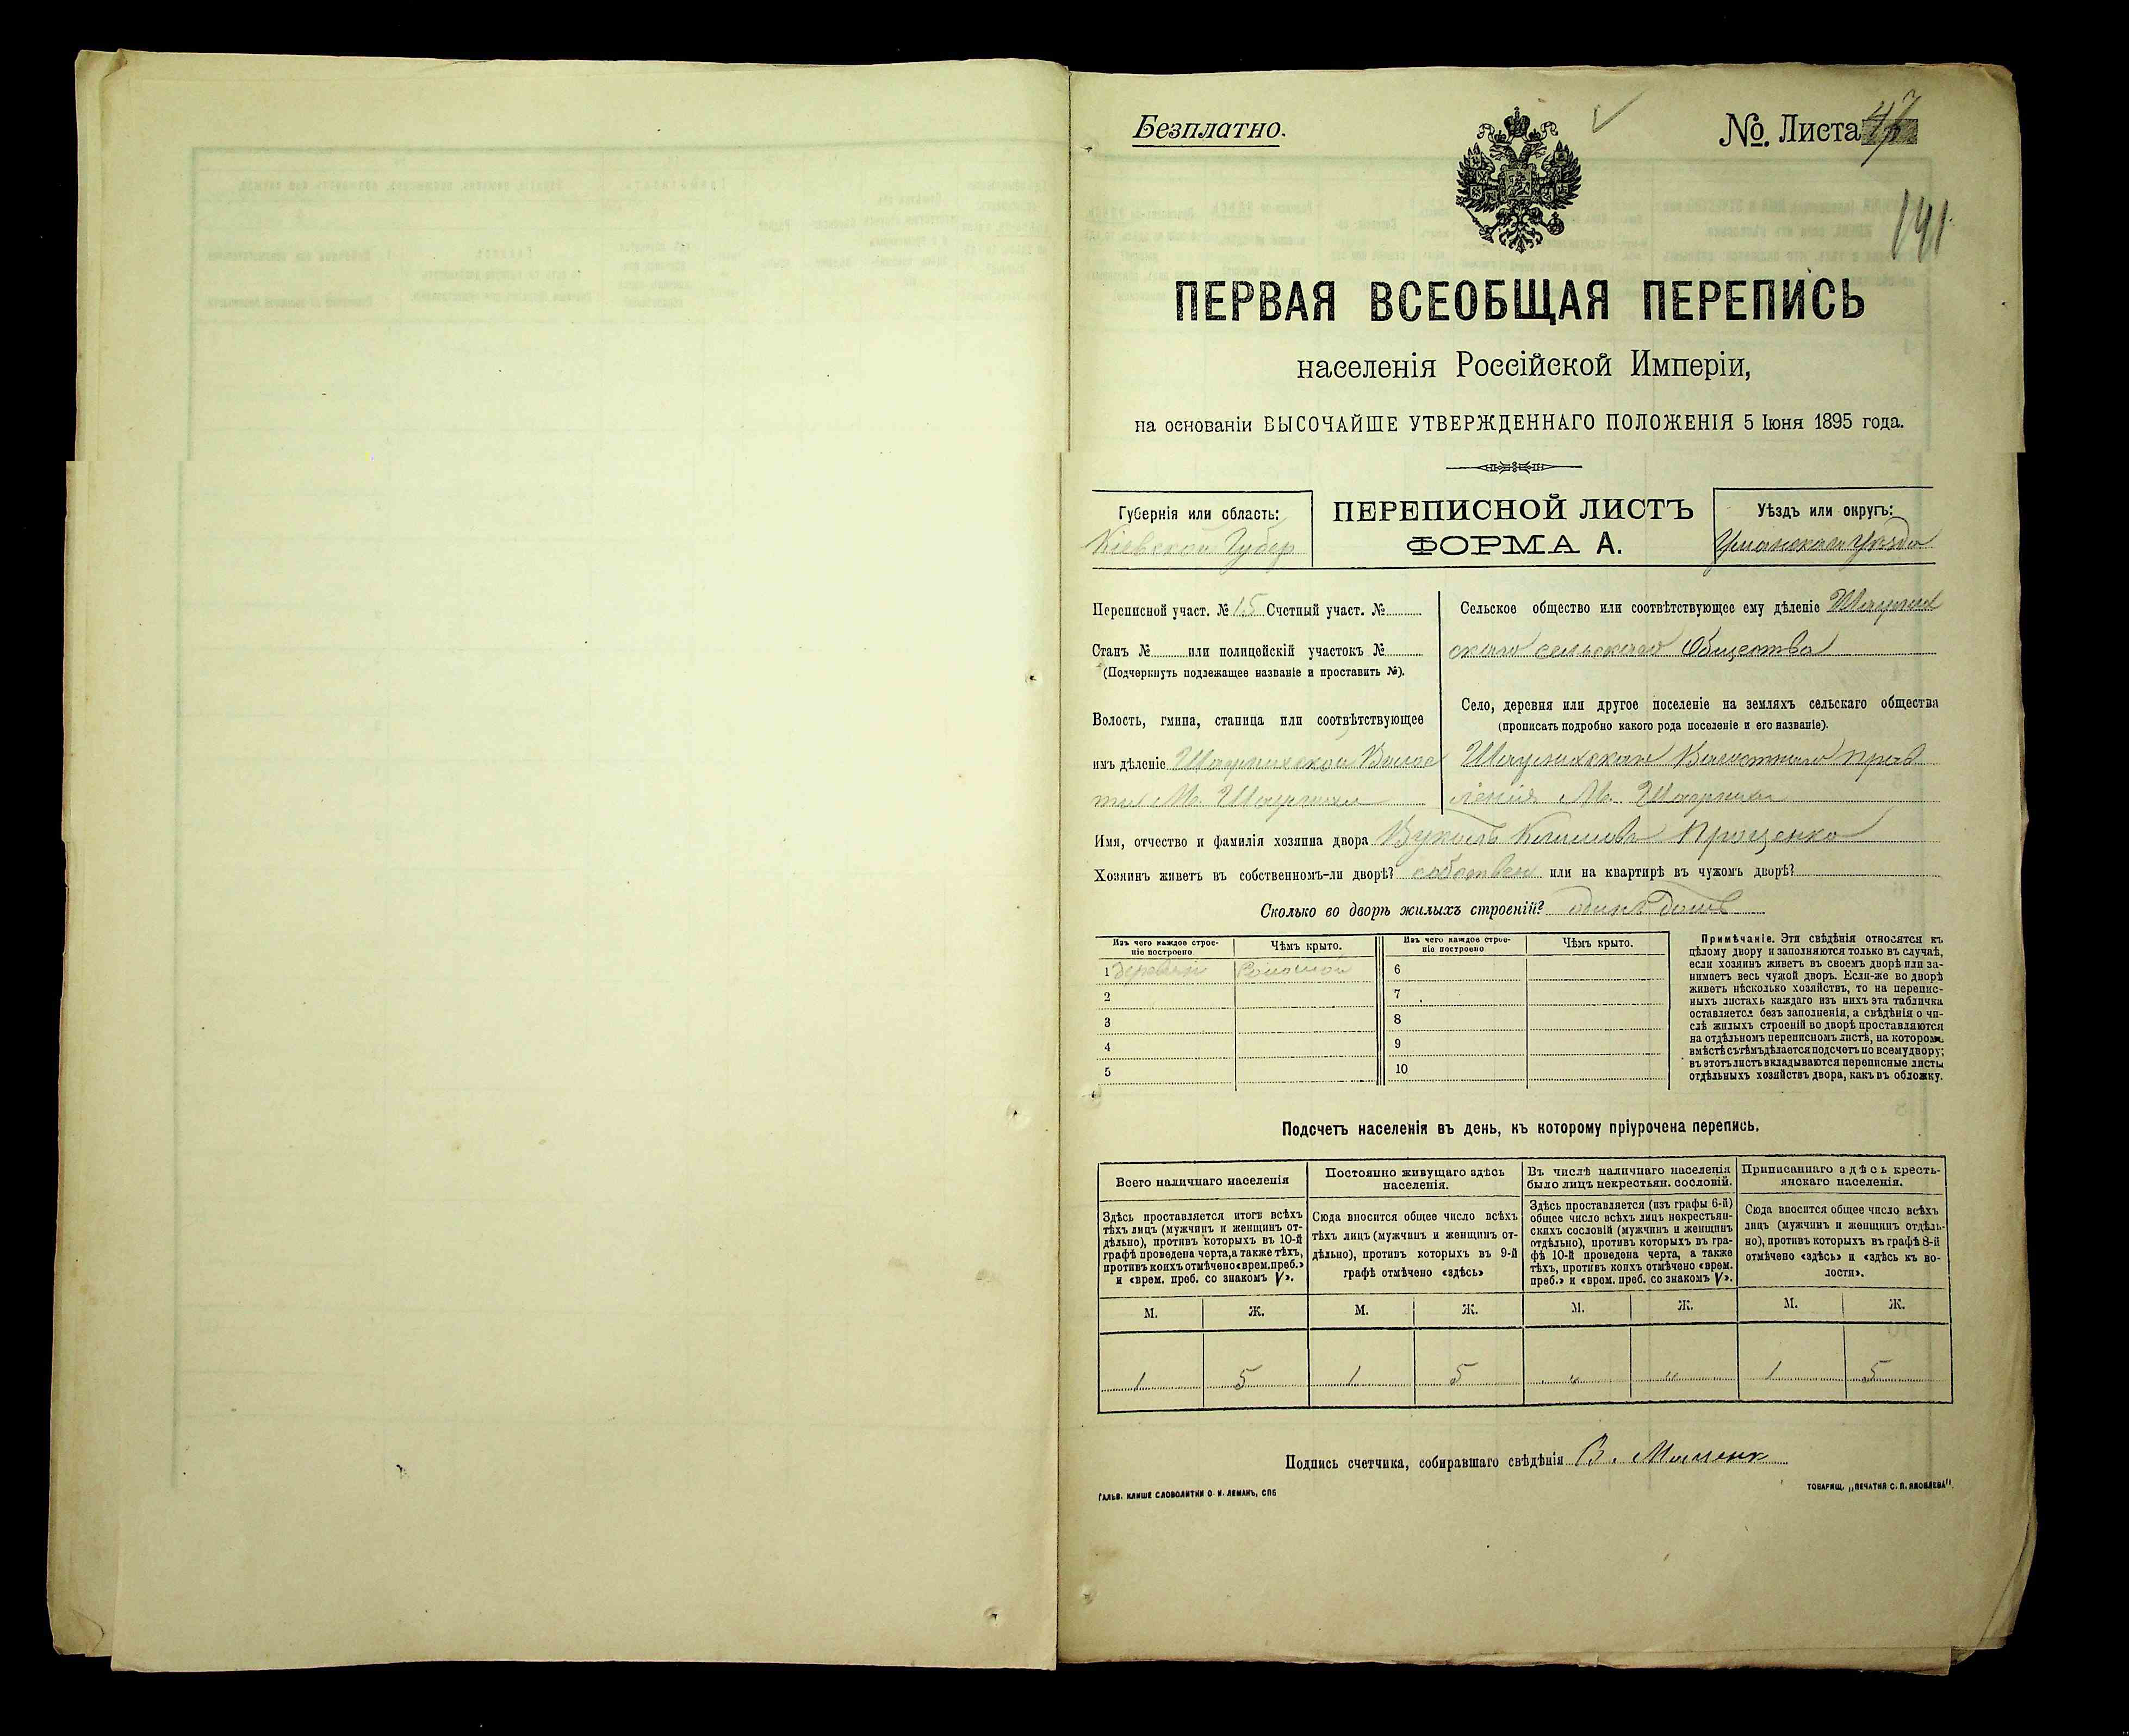 Безплатно.
№. Листа 47
191
ПЕРВАЯ ВСЕОБЩАЯ ПЕРЕПИСЬ
населенія Россійской Имперіи,
на основаніи ВЫСОЧАЙШЕ УТВЕРЖДЕННАГО ПОЛОЖЕНІЯ 5 Іюня 1895 года.
Губернія или область:
Кіевской Губер
ПЕРЕПИСНОЙ ЛИСТЪ
ФОРМА А.
Уѣздъ или округъ:
Уманскаго Уѣзда
Переписной участ. № 15 Счетный участ. №
Станъ № или полицейскій участокъ №
(Подчеркнуть подлежащее названіе и проставить №).
Волость, гмина, станица или соотвѣтствующее
имъ дѣленіе
Сельское общество или соотвѣтствующее ему дѣленіе
скаго сельскаго Общества
Село, деревня или другое поселеніе на земляхъ сельскаго общества
(прописать подробно какого рода поселеніе и его названіе).
Волостного прав
ленія М.
Имя, отчество и фамилія хозяина двора Проценко
Хозяинъ живетъ въ собственномъ-ли дворѣ? собствен или на квартирѣ въ чужомъ дворѣ?
Сколько во дворѣ жилыхъ строеній? одинъ домъ
Изъ чего каждое строе-
ніе построено
Чѣмъ крыто.
Изъ чего каждое строе-
ніе построено
Чѣмъ крыто.
1 Соломой
2
3
4
5
6
7
8
9
10
Примѣчаніе. Эти свѣдѣнія относятся къ
цѣлому двору и заполняются только въ случаѣ,
если хозяинъ живетъ въ своемъ дворѣ или за-
нимаетъ весь чужой дворъ. Если-же во дворѣ
живетъ нѣсколько хозяйствъ, то на перепис-
ныхъ листахъ каждаго изъ нихъ эта табличка
оставляется безъ заполненія, а свѣдѣнія о чи-
слѣ жилыхъ строеній во дворѣ проставляются
на отдѣльномъ переписномъ листѣ, на которомъ
вмѣстѣ съ тѣмъ дѣлается подсчетъ по всему двору;
въ этотъ листъ вкладываются переписные листы
отдѣльныхъ хозяйствъ двора, какъ въ обложку.
Подсчетъ населенія въ день, къ которому пріурочена перепись.
Всего наличнаго населенія
Здѣсь проставляется итогъ всѣхъ
тѣхъ лицъ (мужчинъ и женщинъ от-
дѣльно), противъ которыхъ въ 10-й
графѣ проведена черта, а также тѣхъ,
противъ коихъ отмѣчено «врем. преб.»
и «врем. преб. со знакомъ V».
Постоянно живущаго здѣсь
населенія.
Сюда вносится общее число всѣхъ
тѣхъ лицъ (мужчинъ и женщинъ от-
дѣльно), противъ которыхъ въ 9-й
графѣ отмѣчено «здѣсь»
Въ числѣ наличнаго населенія
было лицъ некрестьян. сословій.
Здѣсь проставляется (изъ графы 6-й)
общее число всѣхъ лицъ некрестьян-
скихъ сословій (мужчинъ и женщинъ
отдѣльно), противъ которыхъ въ гра-
фѣ 10-й проведена черта, а также
тѣхъ, противъ коихъ отмѣчено «врем.
преб.» и «врем. преб. со знакомъ V».
Приписаннаго здѣсь кресть-
янскаго населенія.
Сюда вносится общее число всѣхъ
лицъ (мужчинъ и женщинъ отдѣль-
но), противъ которыхъ въ графѣ 8-й
отмѣчено «здѣсь» и «здѣсь къ во-
лости».
М. Ж. М. Ж. М. Ж. М. Ж.
1 5 1 5 " " 1 5
Подпись счетчика, собиравшаго свѣдѣнія В.
ГАЛЬВ. КЛИШЕ СЛОВОЛИТНИ О. И. ЛЕМАНЪ, СПБ
ТОВАРИЩ. „ПЕЧАТНЯ С. П. ЯКОВЛЕВА".